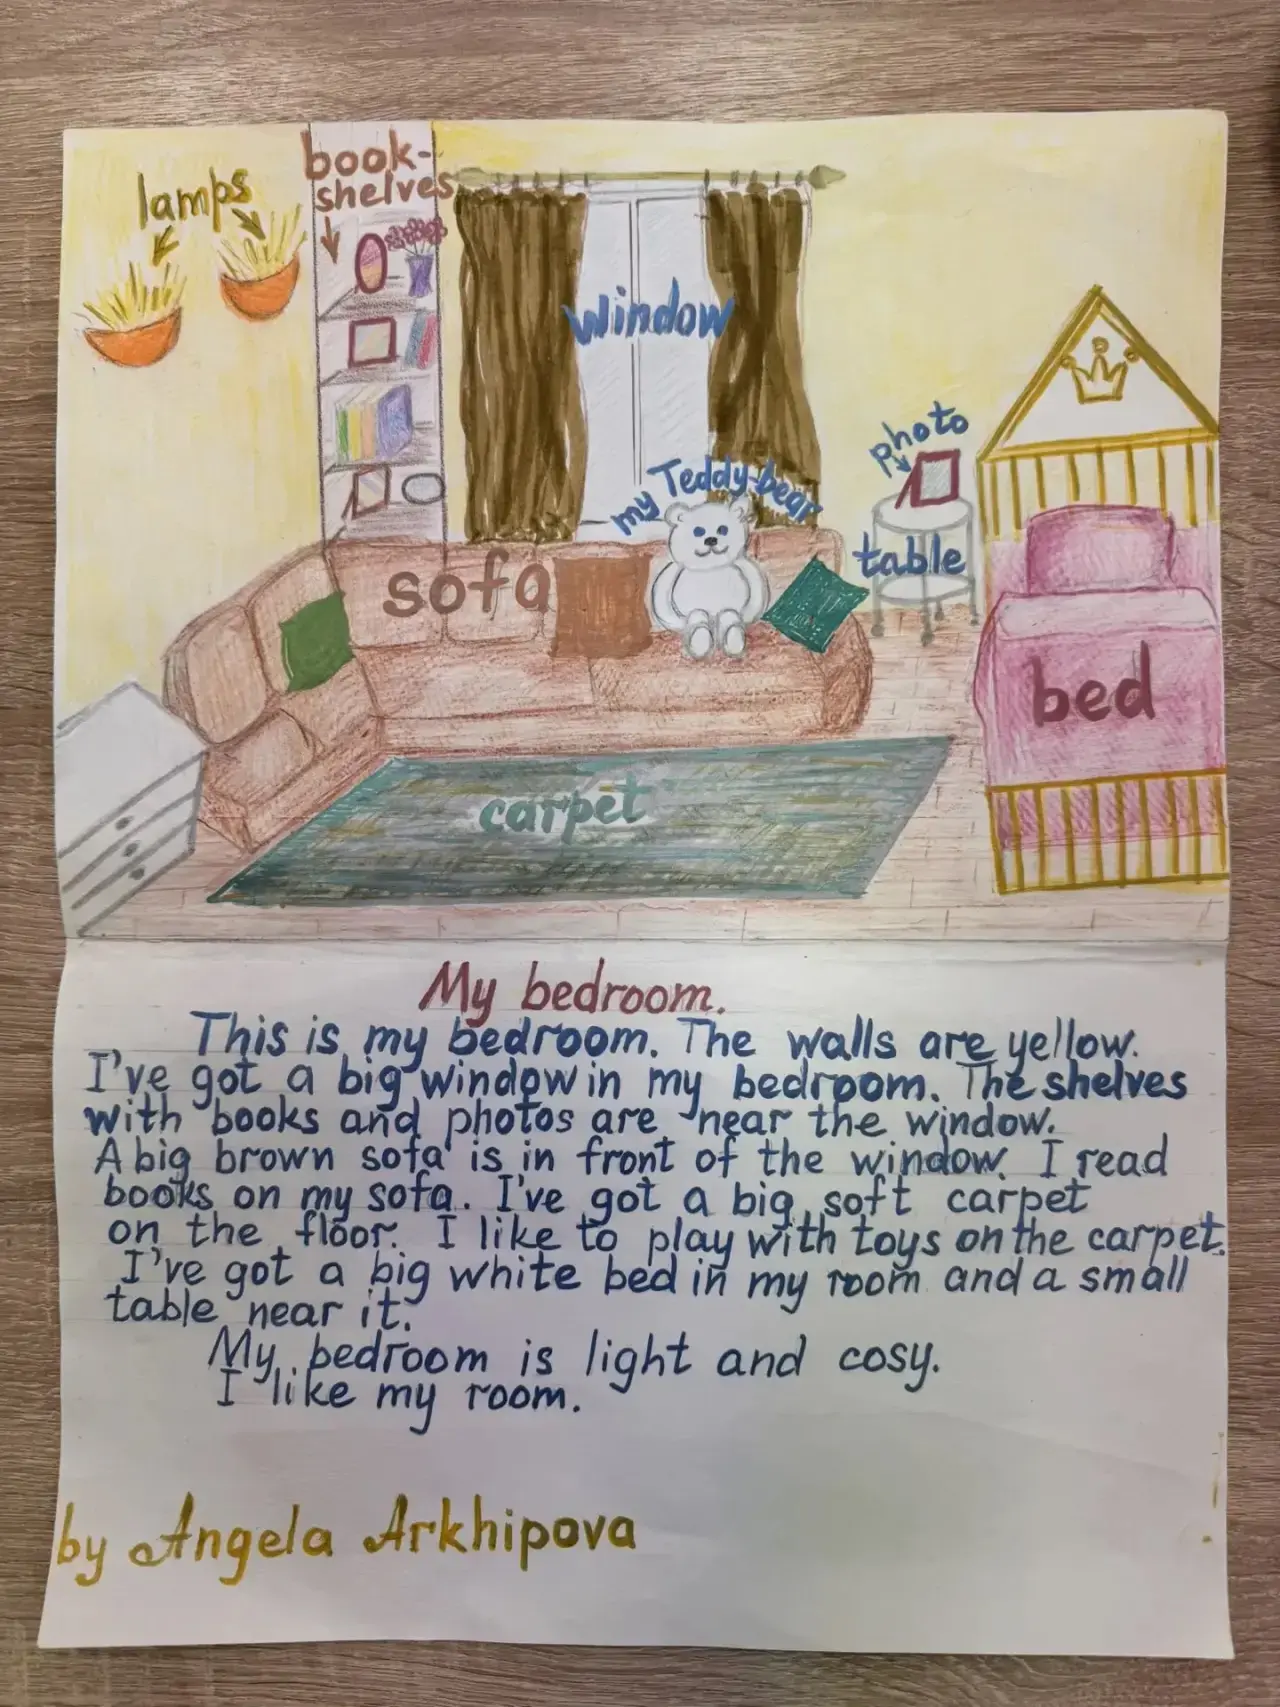 lamps
book-
shelves
window
photo
my Teddy-bear
table
sofa
bed
carpet
My bedroom.
This is my bedroom. The walls are yellow.
I've got a big window in my bedroom. The shelves
with books and photos are near the window.
A big brown sofa is in front of the window. I read
books on my sofa. I've got a big soft carpet
on the floor. I like to play with toys on the carpet.
I've got a big white bed in my room and a small
table near it.
My bedroom is light and cosy.
I like my room.
by Angela Arkhipova